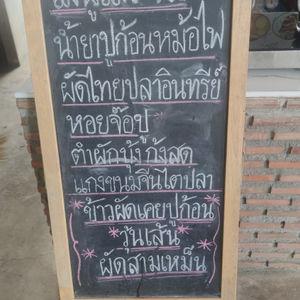 น้ำยาปูก้อนหม้อไฟ
ผัดไทยปลาอินทรีย์
หอยจ๊อปู
ตำผักบุ้งกุ้งสด
แกงขนมจีนไตปลา
ข้าวผัดเคยปูก้อน
วุ้นเส้น
ผัดสามเหม็น